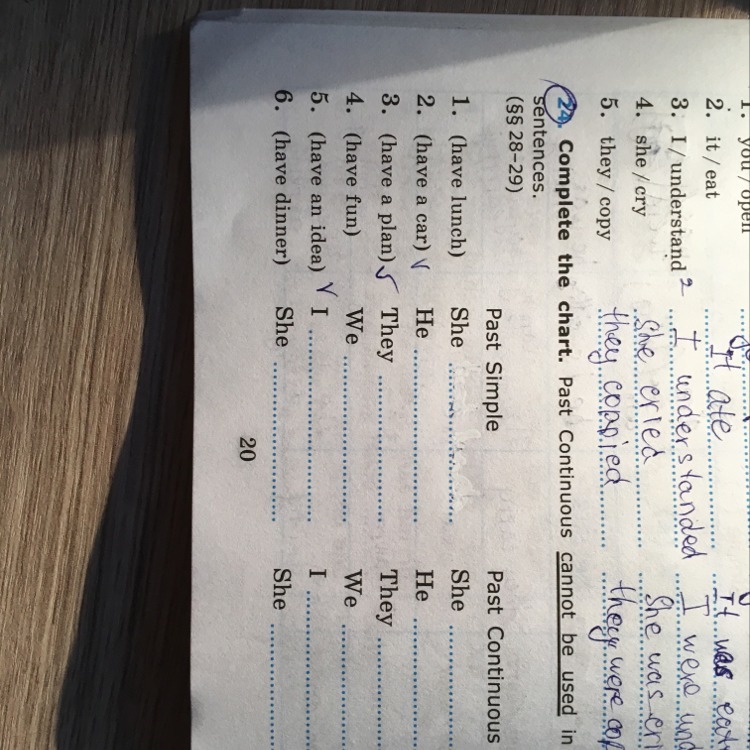 1. you / open
2. it / eat It ate It was eat
3. I / understand 2 I understanded I were und
4. she / cry she cried She was cr
5. they / copy they coppied they were cop
24. Complete the chart. Past Continuous cannot be used in
sentences.
(§§ 28–29)
Past Simple Past Continuous
1. (have lunch) She She
2. (have a car) He He
3. (have a plan) They They
4. (have fun) We We
5. (have an idea) I I
6. (have dinner) She She
20